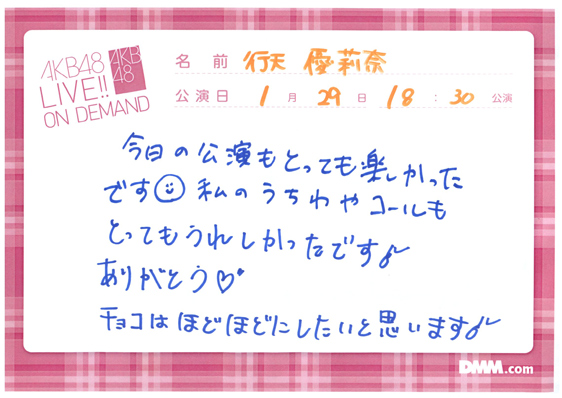 AKB48
LIVE!!
ON DEMAND
AKB
48
名前 行天 優莉奈
公演日 1月29日 18:30 公演
今日の公演もとっても楽しかった
です 私のうちわやコールも
とってもうれしかったです♪
ありがとう♡
チョコはほどほどにしたいと思います♪
DMM.com